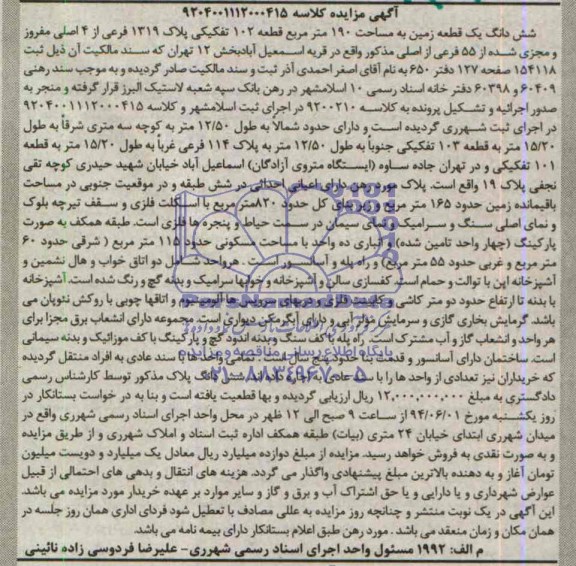 آگهی مزایده کلاسه ۹۲۰۴۰۰۱۱۱۲۰۰۰۴۱۵
شش دانگ یک قطعه زمین به مساحت ۱۹۰ متر مربع قطعه ۱۰۲ تفکیکی پلاک ۱۳۱۹ فرعی از ۴ اصلی مفروز
و مجزی شده از ۵۵ فرعی از اصلی مذکور واقع در قریه اسمعیل آبادبخش ۱۲ تهران که سند مالکیت آن ذیل ثبت
۱۵۴۱۱۸ صفحه ۱۲۷ دفتر ۶۵۰ به نام آقای اصغر احمدی آذر ثبت و سند مالکیت صادر گردیده و به موجب سند رهنی
۶۰۴۰۹ و ۶۰۳۹۸ دفتر خانه اسناد رسمی ۱۰ اسلامشهر در رهن بانک سپه شعبه لاستیک البرز قرار گرفته و منجر به
صدور اجرائیه و تشکیل پرونده به کلاسه ۹۲۰۰۲۱۰ در اجرای ثبت اسلامشهر و کلاسه ۹۲۰۴۰۰۱۱۱۲۰۰۰۴۱۵
در اجرای ثبت شهرری گردیده است و دارای حدود شمالاً به طول ۱۲/۵۰ متر به کوچه سه متری شرقاً به طول
۱۵/۲۰ متر به قطعه ۱۰۳ تفکیکی جنوباً به طول ۱۲/۵۰ متر به پلاک ۱۱۴ فرعی غرباً به طول ۱۵/۲۰ متر به قطعه
۱۰۱ تفکیکی و در تهران جاده ساوه (ایستگاه متروی آزادگان) اسماعیل آباد خیابان شهید حیدری کوچه تقی
نجفی پلاک ۱۹ واقع است. پلاک مورد رهن دارای اعیانی احداثی در شش طبقه و در موقعیت جنوبی در مساحت
باقیمانده زمین حدود ۱۶۵ متر مربع و زیربنای کل حدود ۸۲۰متر مربع با اسکلت فلزی و سقف تیرچه بلوک
و نمای اصلی سنگ و سرامیک و نمای سیمان در سمت حیاط و پنجره ها فلزی است. طبقه همکف به صورت
پارکینگ (چهار واحد تامین شده) و انباری ده واحد با مساحت مسکونی حدود ۱۱۵ متر مربع ( شرقی حدود ۶۰
متر مربع و غربی حدود ۵۵ متر مربع) و راه پله و آسانسور است . هرواحد شامل دو اتاق خواب و هال نشمین و
آشپزخانه اپن با توالت و حمام است. کفسازی سالن و آشپزخانه و خوابها سرامیک و بدنه گچ و رنگ شده است. آشپزخانه
با بدنه تا ارتفاع حدود دو متر کاشی و کابینت فلزی و دربهای سرویس ها آلومینیوم و اتاقها چوبی با روکش نئوپان می
باشد. گرمایش بخاری گازی و سرمایش کولر آبی و دارای آبگرمکن دیواری است. مجموعه دارای انشعاب برق مجزا برای
هر واحد و انشعاب گاز و آب مشترک است. راه پله با کف سنگ وبدنه اندود گچ و پارکینگ با کف موزائیک و بدنه سیمانی
است. ساختمان دارای آسانسور و قدمت بنا حدود پنج سال است. تمامی واحدها با سند عادی به افراد منتقل گردیده
که خریداران نیز تعدادی از واحد ها را با سند عادی به اجاره داده اند. شش دانگ پلاک مذکور توسط کارشناس رسمی
دادگستری به مبلغ ۱۲,۰۰۰,۰۰۰,۰۰۰ ریال ارزیابی گردیده و بها قطعیت یافته است و بنا به در خواست بستانکار در
روز یکشنبه مورخ ۹۴/۰۶/۰۱ از ساعت ۹ صبح الی ۱۲ ظهر در محل واحد اجرای اسناد رسمی شهرری واقع در
میدان شهرری ابتدای خیابان ۲۴ متری (بیات) طبقه همکف اداره ثبت اسناد و املاک شهرری و از طریق مزایده
و به صورت نقدی به فروش خواهد رسید. مزایده از مبلغ دوازده میلیارد ریال معادل یک میلیارد و دویست میلیون
تومان آغاز و به دهنده بالاترین مبلغ پیشنهادی واگذار می گردد. هزینه های انتقال و بدهی های احتمالی از قبیل
عوارض شهرداری و یا دارایی و یا حق اشتراک آب و برق و گاز و سایر موارد بر عهده خریدار مورد مزایده می باشد.
این آگهی در یک نوبت منتشر و چنانچه روز مزایده به عللی مصادف با تعطیل شود فردای اداری همان روز جلسه در
همان مکان و زمان منعقد می باشد . مورد رهن طبق اعلام بستانکار دارای بیمه نامه می باشد.
م الف: ۱۹۹۲ مسئول واحد اجرای اسناد رسمی شهرری- علیرضا فردوسی زاده نائینی
پایگاه اطلاع رسانی مناقصه و مزایده
۰۲۱-۸۸۳۴۹۶۷۰-۵